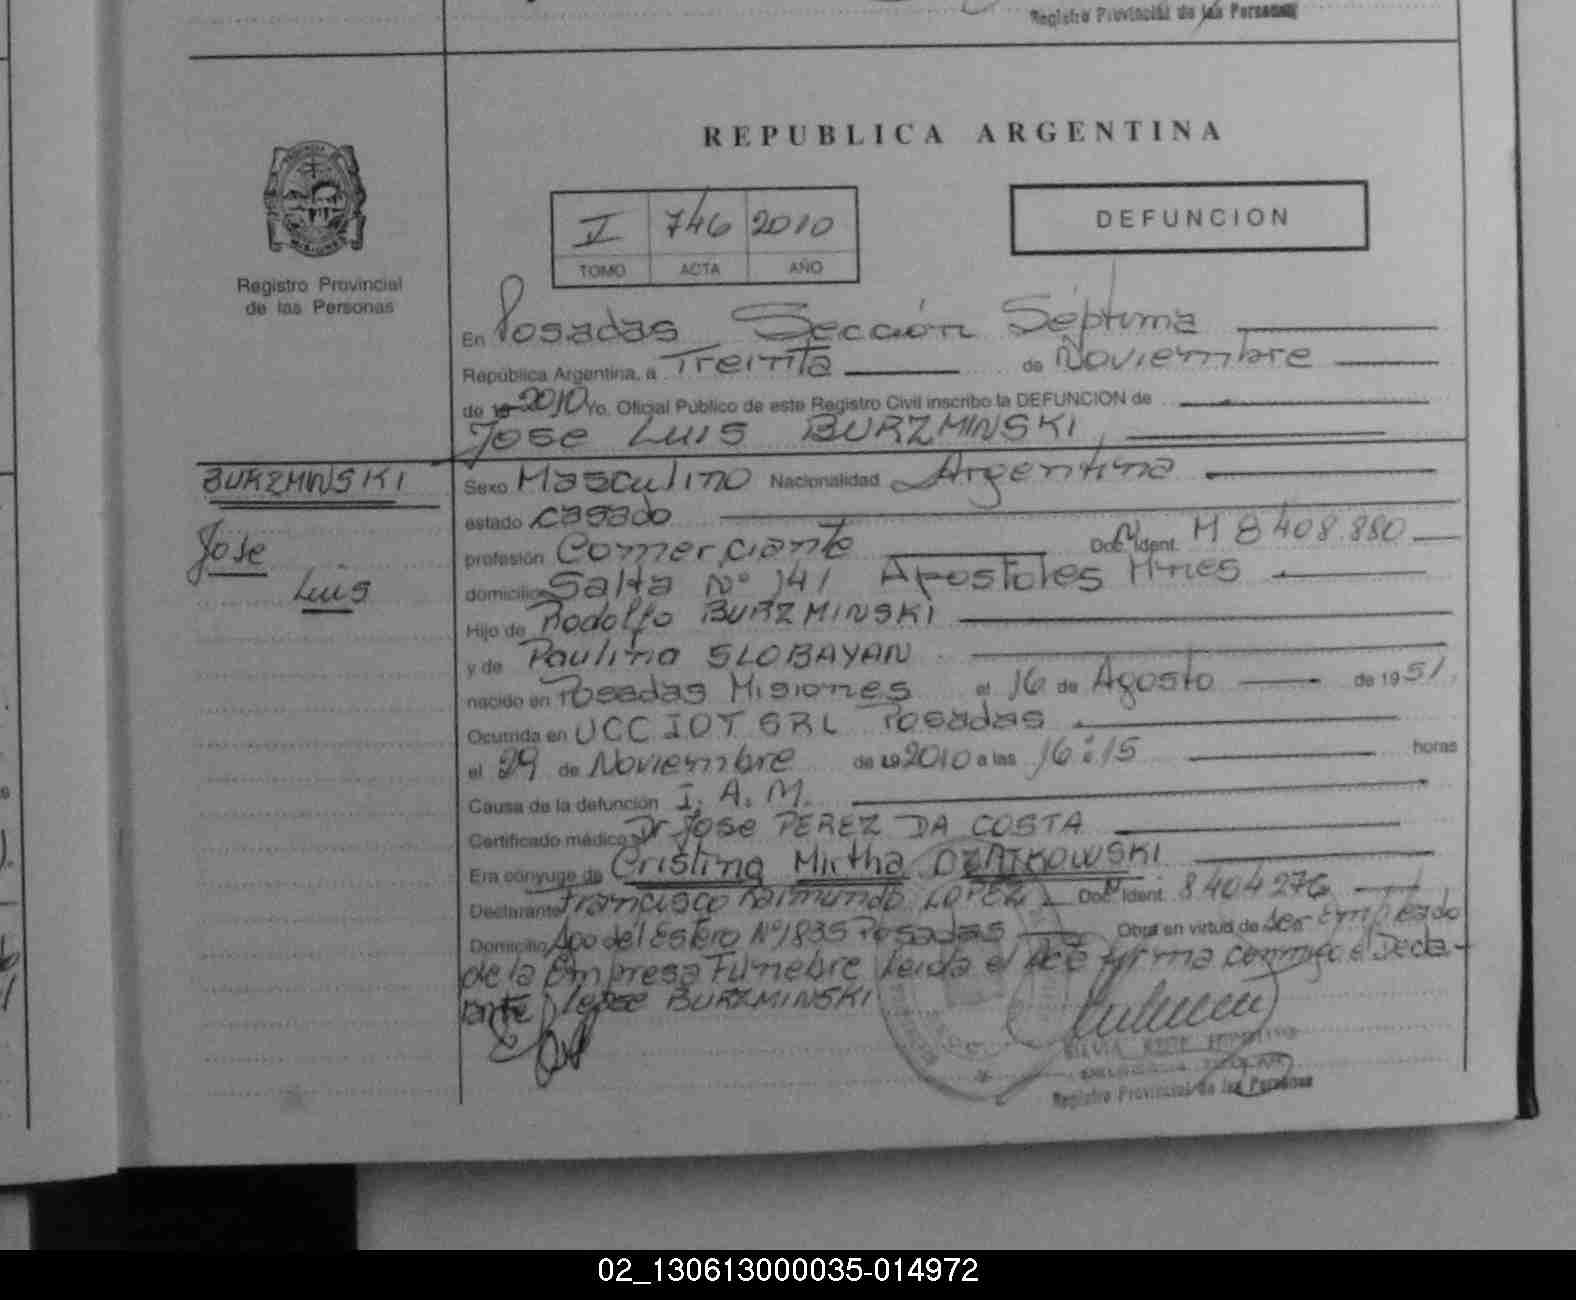 Registro Provincial de las Personas
REPUBLICA ARGENTINA
V 746 2010
TOMO ACTA AÑO
DEFUNCION
Registro Provincial
de las Personas
En Posadas Sección Séptima
República Argentina, a Treinta de Noviembre
de 19 2010 Yo, Oficial Público de este Registro Civil inscribo la DEFUNCION de
Jose Luis BURZMINSKI
BURZMINSKI
Jose
Luis
Sexo Masculino Nacionalidad Argentina
estado casado
profesión Comerciante Doc. Ident. M 8 408.880
domicilio Salta Nº 141 Apostoles Mnes
Hijo de Rodolfo BURZMINSKI
y de Paulina SLOBAYAN
nacido en Posadas Misiones el 16 de Agosto de 1951
Ocurrida en UCC IOT SRL Posadas
el 29 de Noviembre de 19 2010 a las 16:15 horas
Causa de la defunción I. A. M.
Certificado médico Dr Jose PEREZ DA COSTA
Era cónyuge de Cristina Mirtha DZATKOWSKI
Declarante Francisco Raimundo LOPEZ Doc. Ident. 8404276
Domicilio Sgo del Estero Nº 1835 Posadas Obra en virtud de ser Empleado
de la Empresa Funebre Leida el firma conmigo el Decla-
rante BURZMINSKI
SILVIA
Registro Provincial de las Personas
02_130613000035-014972